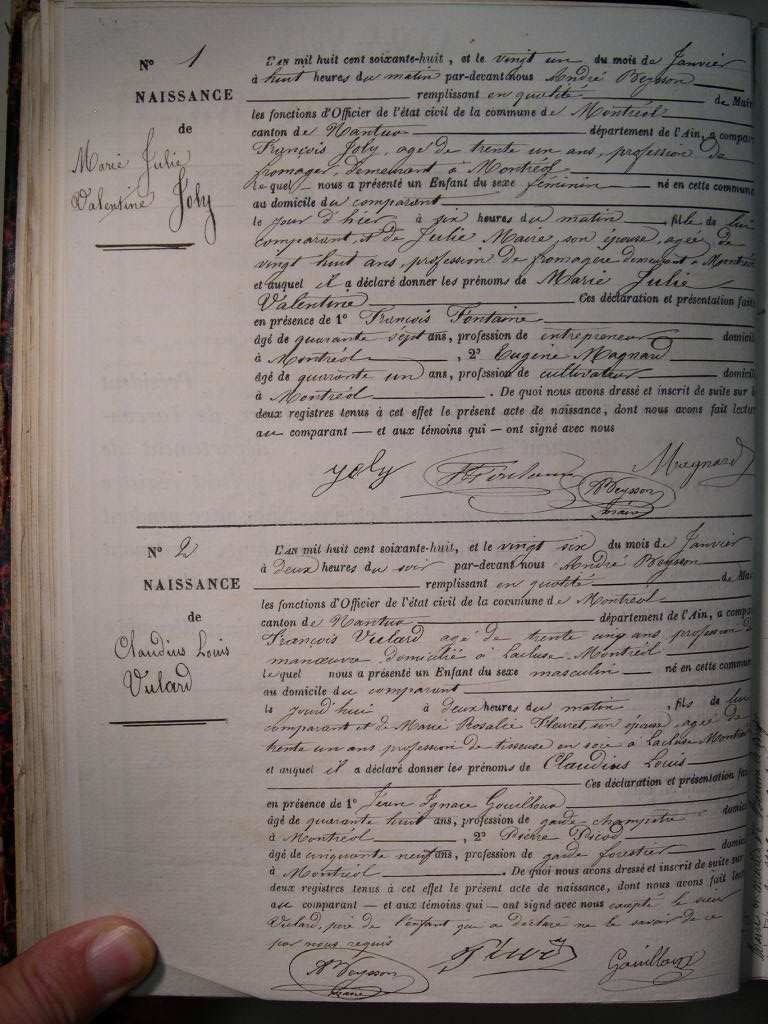 N° 1
NAISSANCE
de
Marie Julie
Valentine Joly
L'AN mil huit cent soixante-huit, et le vingt un du mois de Janvier
à huit heures du matin par-devant nous André Beysson
remplissant en qualité de Mair
les fonctions d'Officier de l'état civil de la commune de Montréal
canton de Nantua département de l'Ain, a compar
François Joly, agé de trente un ans, profession de
fromager, demeurant à Montréal
Le quel nous a présenté un Enfant du sexe féminin né en cette commune
au domicile du comparant
le jour d'hier à six heures du matin, fille de lui
comparant et de Julie Maire, son épouse, agée de
vingt huit ans, profession de fromagère demeurant à Montréal
et auquel il a déclaré donner les prénoms de Marie Julie
Valentine Ces déclaration et présentation faite
en présence de 1° François Fontaine
âgé de quarante sept ans, profession de entrepreneur domicil
à Montréal, 2° Eugène Magnard
âgé de quarante un ans, profession de cultivateur domicil
à Montréal. De quoi nous avons dressé et inscrit de suite sur l
deux registres tenus à cet effet le présent acte de naissance, dont nous avons fait lectur
au comparant — et aux témoins qui — ont signé avec nous
Joly Magnard
ABeysson
maire
N° 2
NAISSANCE
de
Claudius Louis
Vulard
L'AN mil huit cent soixante-huit, et le vingt six du mois de Janvier
à deux heures du soir par-devant nous André Beysson
remplissant en qualité de Mai
les fonctions d'Officier de l'état civil de la commune de Montréal
canton de Nantua département de l'Ain, a compa
François Vulard agé de trente cinq ans profession de
manœuvre, domicilié à Lacluse-Montréal
Le quel nous a présenté un Enfant du sexe masculin né en cette commune
au domicile du comparant
le jourd'hui à deux heures du matin, fils de lui
comparant et de Marie Rosalie Fleuret, son épouse, agée de
trente un ans profession de tisseuse en soie à Lacluse Montréal
et auquel il a déclaré donner les prénoms de Claudius Louis
Ces déclaration et présentation fai
en présence de 1° Jean Ignace Gouilloux
âgé de quarante huit ans, profession de garde champêtre domici
à Montréal, 2° Pierre
âgé de cinquante neuf ans, profession de garde forestier domici
à Montréal. De quoi nous avons dressé et inscrit de suite sur
deux registres tenus à cet effet le présent acte de naissance, dont nous avons fait lect
au comparant — et aux témoins qui — ont signé avec nous excepté le sieur
Vulard, père de l'enfant qui a déclaré ne le savoir de ce
par nous requis
ABeysson Gouilloux
maire